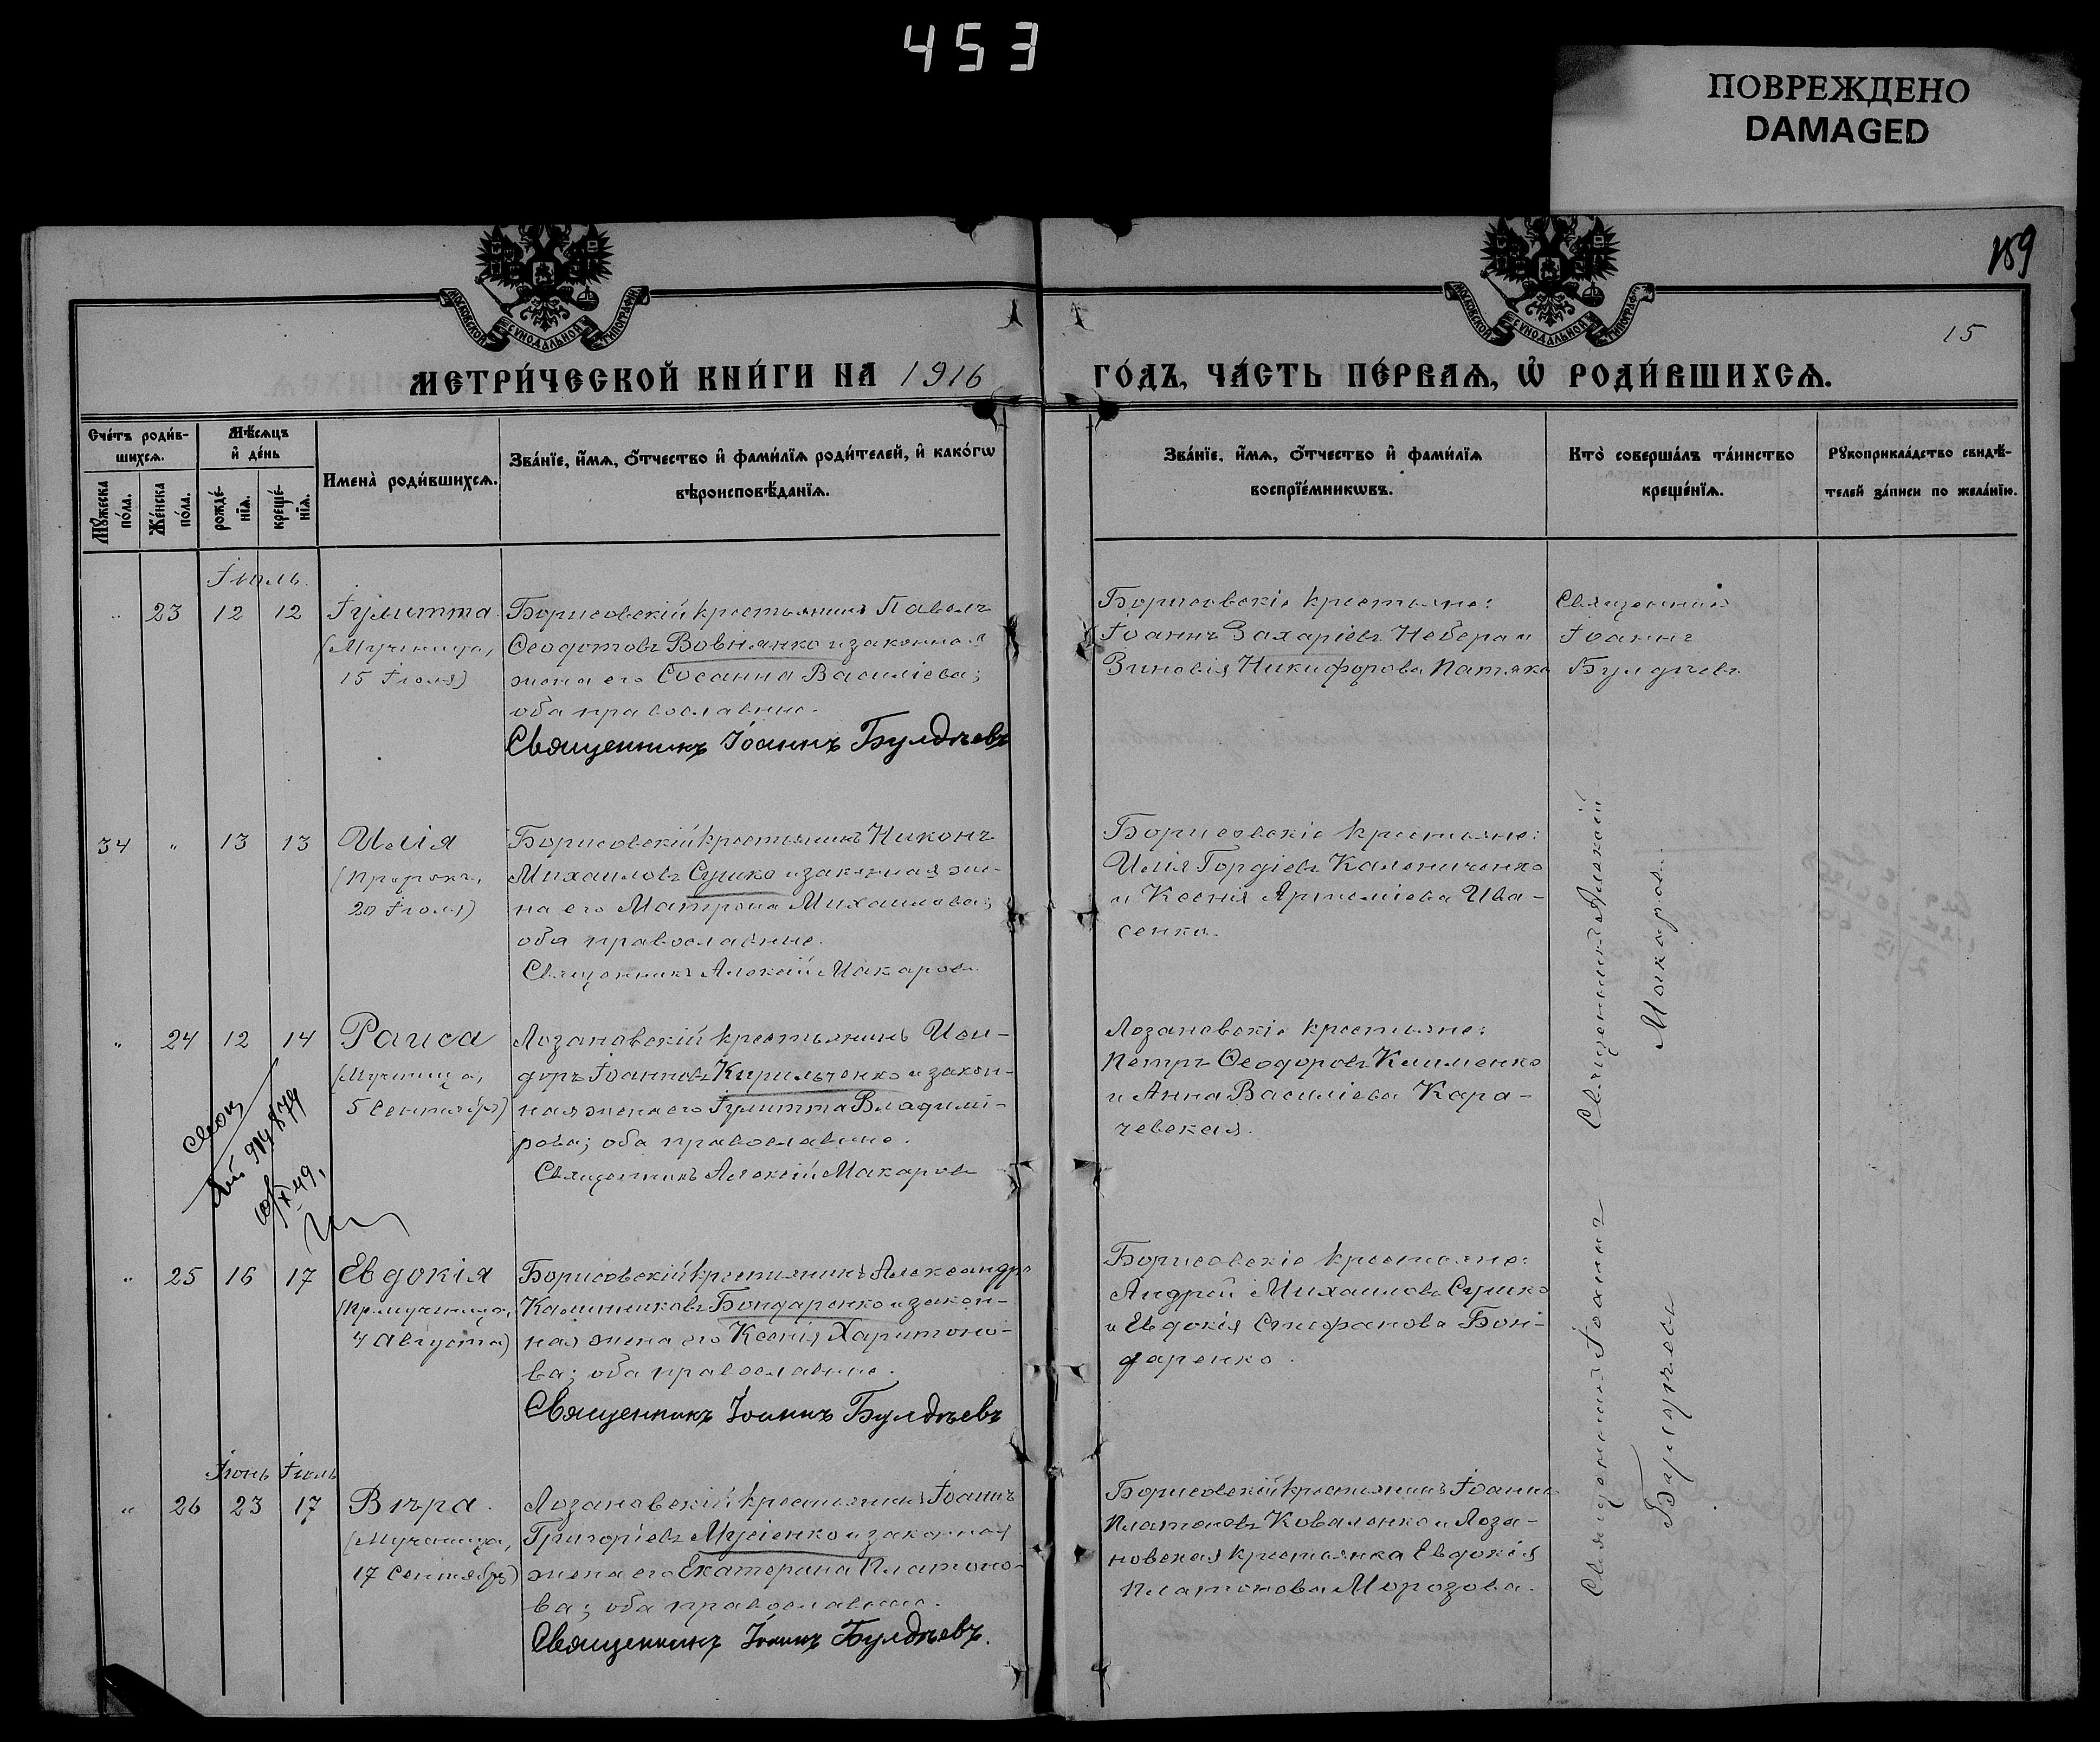 453
ПОВРЕЖДЕНО
DAMAGED
189
15
МОСКОВСКОЙ СѴНОДАЛЬНОЙ ТИПОГРАФІИ
МОСКОВСКОЙ СѴНОДАЛЬНОЙ ТИПОГРАФІИ
МЕТРИ́ЧЕСКОЙ КНИ́ГИ НА 1916
ГО́ДЪ, ЧА́СТЬ ПЕ́РВАѦ, Ѡ҆ РОДИ́ВШИХСѦ.
Сче́тъ роди́в-
шихсѧ.
Мѣ́сѧцъ
и҆ де́нь
Мꙋ́жеска
по́ла.
Же́нска
по́ла.
рожде́-
нїѧ.
креще́-
нїѧ.
Имена̀ роди́вшихсѧ.
Зва́нїе, и҆́мѧ, ѻ҆́тчество и҆ фами́лїѧ роди́телей, и҆ како́гѡ
вѣроисповѣ́данїѧ.
Зва́нїе, и҆́мѧ, ѻ҆́тчество и҆ фами́лїѧ
воспрїе́мникѡвъ.
Кто̀ соверша́лъ та́инство
креще́нїѧ.
Рꙋкоприкла́дство свидѣ́-
телей за́писи по жела́нїю.
Іюль.
" 23 12 12 Іулитта
(Мученица,
15 Іюля)
Борисовскій крестьянинъ Павелъ
Ѳеодотовъ Вовнянко и законная
жена его Сосанна Василіева;
оба православные.
Священникъ Іоаннъ Булдѣевъ
Борисовскіе крестьяне:
Іоаннъ Захаріевъ Небера и
Зиновія Никифорова Патяка
Священникъ
Іоаннъ
Булдѣевъ
34 " 13 13 Илія
(Пророкъ,
20 Іюля)
Борисовскій крестьянинъ Никонъ
Михаиловъ Сушко и законная же-
на его Матрона Михаилова;
оба православные.
Священникъ Алексій Макаровъ
Борисовскіе крестьяне:
Илія Гордіевъ Калениченко
и Ксенія Артеміева Ива-
сенко.
Священникъ Алексій
Макаровъ.
" 24 12 14 Раиса
(Мученица,
5 Сентября)
Лозановскій крестьянинъ Иси-
доръ Іоанновъ Кирильченко и закон-
ная жена его Іулитта Владими-
рова; оба православные.
Священникъ Алексій Макаровъ
Лозановскіе крестьяне:
Петръ Ѳеодоровъ Клименко
и Анна Василіева Кара-
чевская.
" 25 16 17 Евдокія
(Прмученица,
4 Августа)
Борисовскій крестьянинъ Александръ
Каллиниковъ Бондаренко и закон-
ная жена его Ксенія Харитоно-
ва; оба православные.
Священникъ Іоаннъ Булдѣевъ
Борисовскіе крестьяне:
Андрей Михаиловъ Сушко
и Евдокія Стефанова Бон-
даренко.
Священникъ Іоаннъ
Булдѣевъ
Іюнь Іюль
" 26 23 17 Вѣра.
(Мученица,
17 Сентября)
Лозановскій крестьянинъ Іоаннъ
Григоріевъ Мусіенко и законная
жена его Екатерина Платоно-
ва; оба православные.
Священникъ Іоаннъ Булдѣевъ.
Борисовскій крестьянинъ Іоаннъ
Платоновъ Коваленко и Лоза-
новская крестьянка Евдокія
Платонова Морозова.